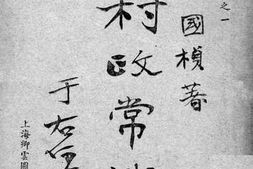 之一
國楨著
村政常
于右任
上海卿雲圖